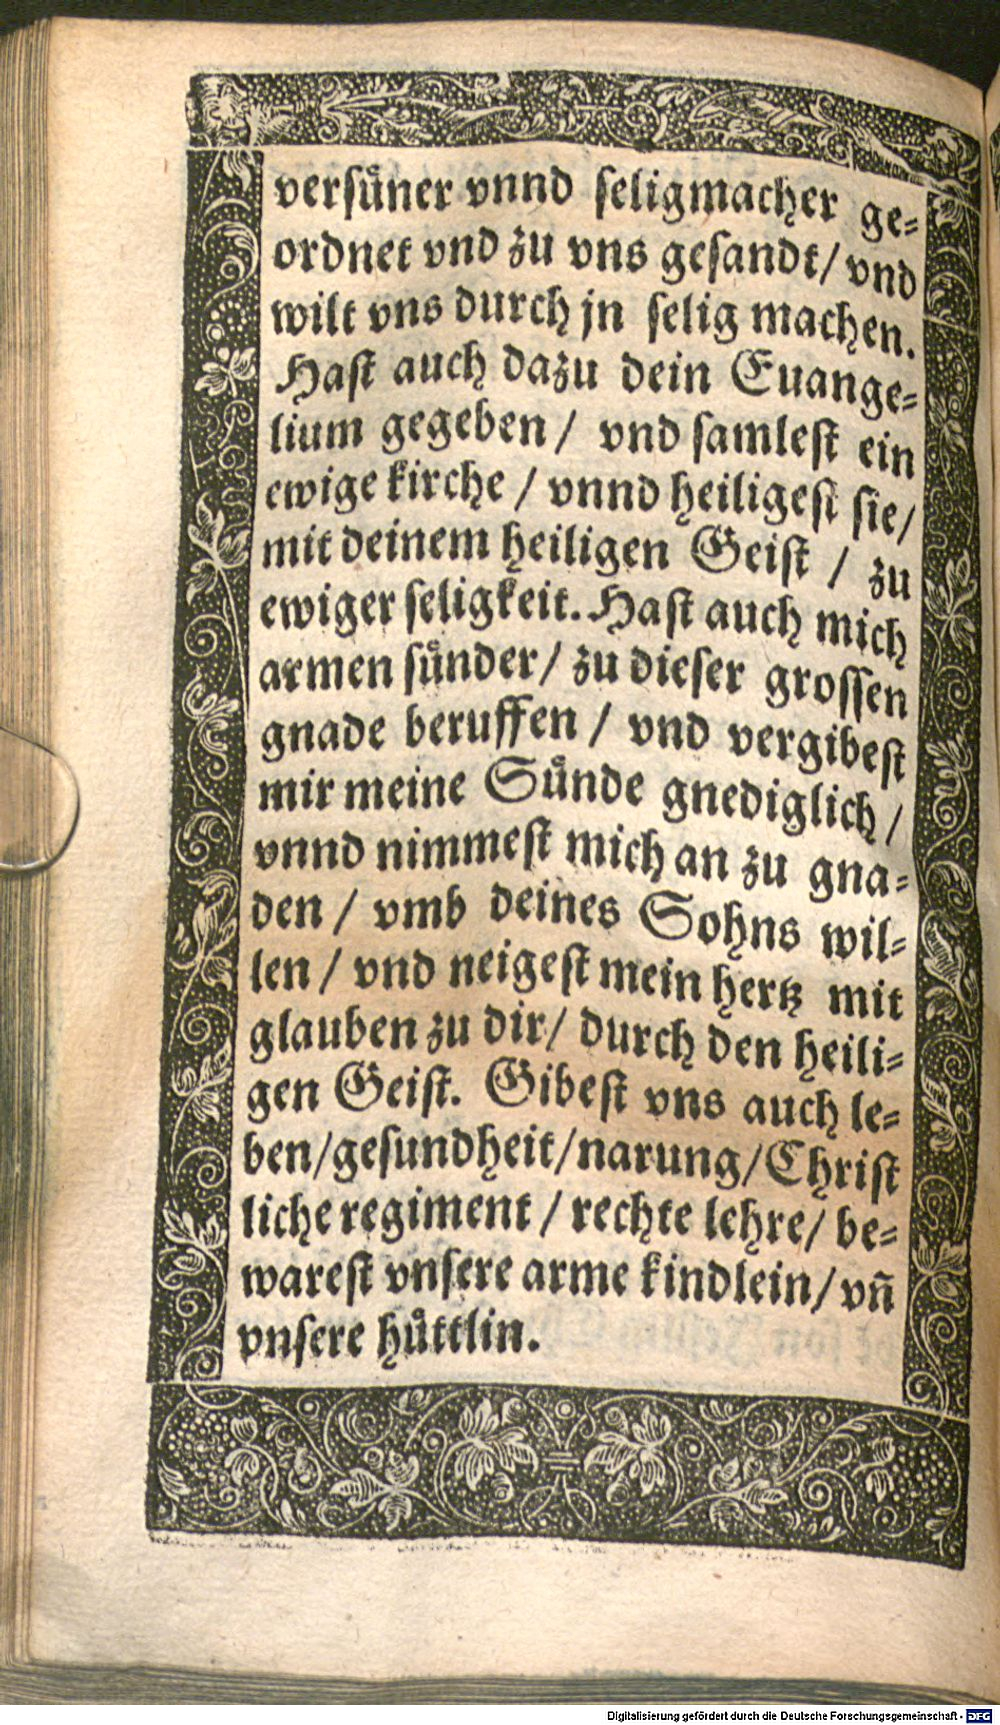 verſuͤner vnnd ſeligmacher ge⸗
ordnet vnd zu vns geſandt/ vnd
wilt vns durch jn ſelig machen.
Haſt auch dazu dein Euange⸗
lium gegeben / vnd ſamleſt ein
ewige kirche / vnnd heiligeſt ſie/
mit deinem heiligen Geiſt / zu
ewiger ſeligkeit. Haſt auch mich
armen ſuͤnder/ zu dieſer groſſen
gnade beruffen / vnd vergibeſt
mir meine Suͤnde gnediglich /
vnnd nimmeſt mich an zu gna⸗
den / vmb deines Sohns wil⸗
len / vnd neigeſt mein hertz mit
glauben zu dir/ durch den heili⸗
gen Geiſt. Gibeſt vns auch le⸗
ben/geſundheit/narung/Chriſt
liche regiment / rechte lehre/ be⸗
wareſt vnſere arme kindlein/ vñ
vnſere huͤttlin.
Digitalisierung gefördert durch die Deutsche Forschungsgemeinschaft - DFG